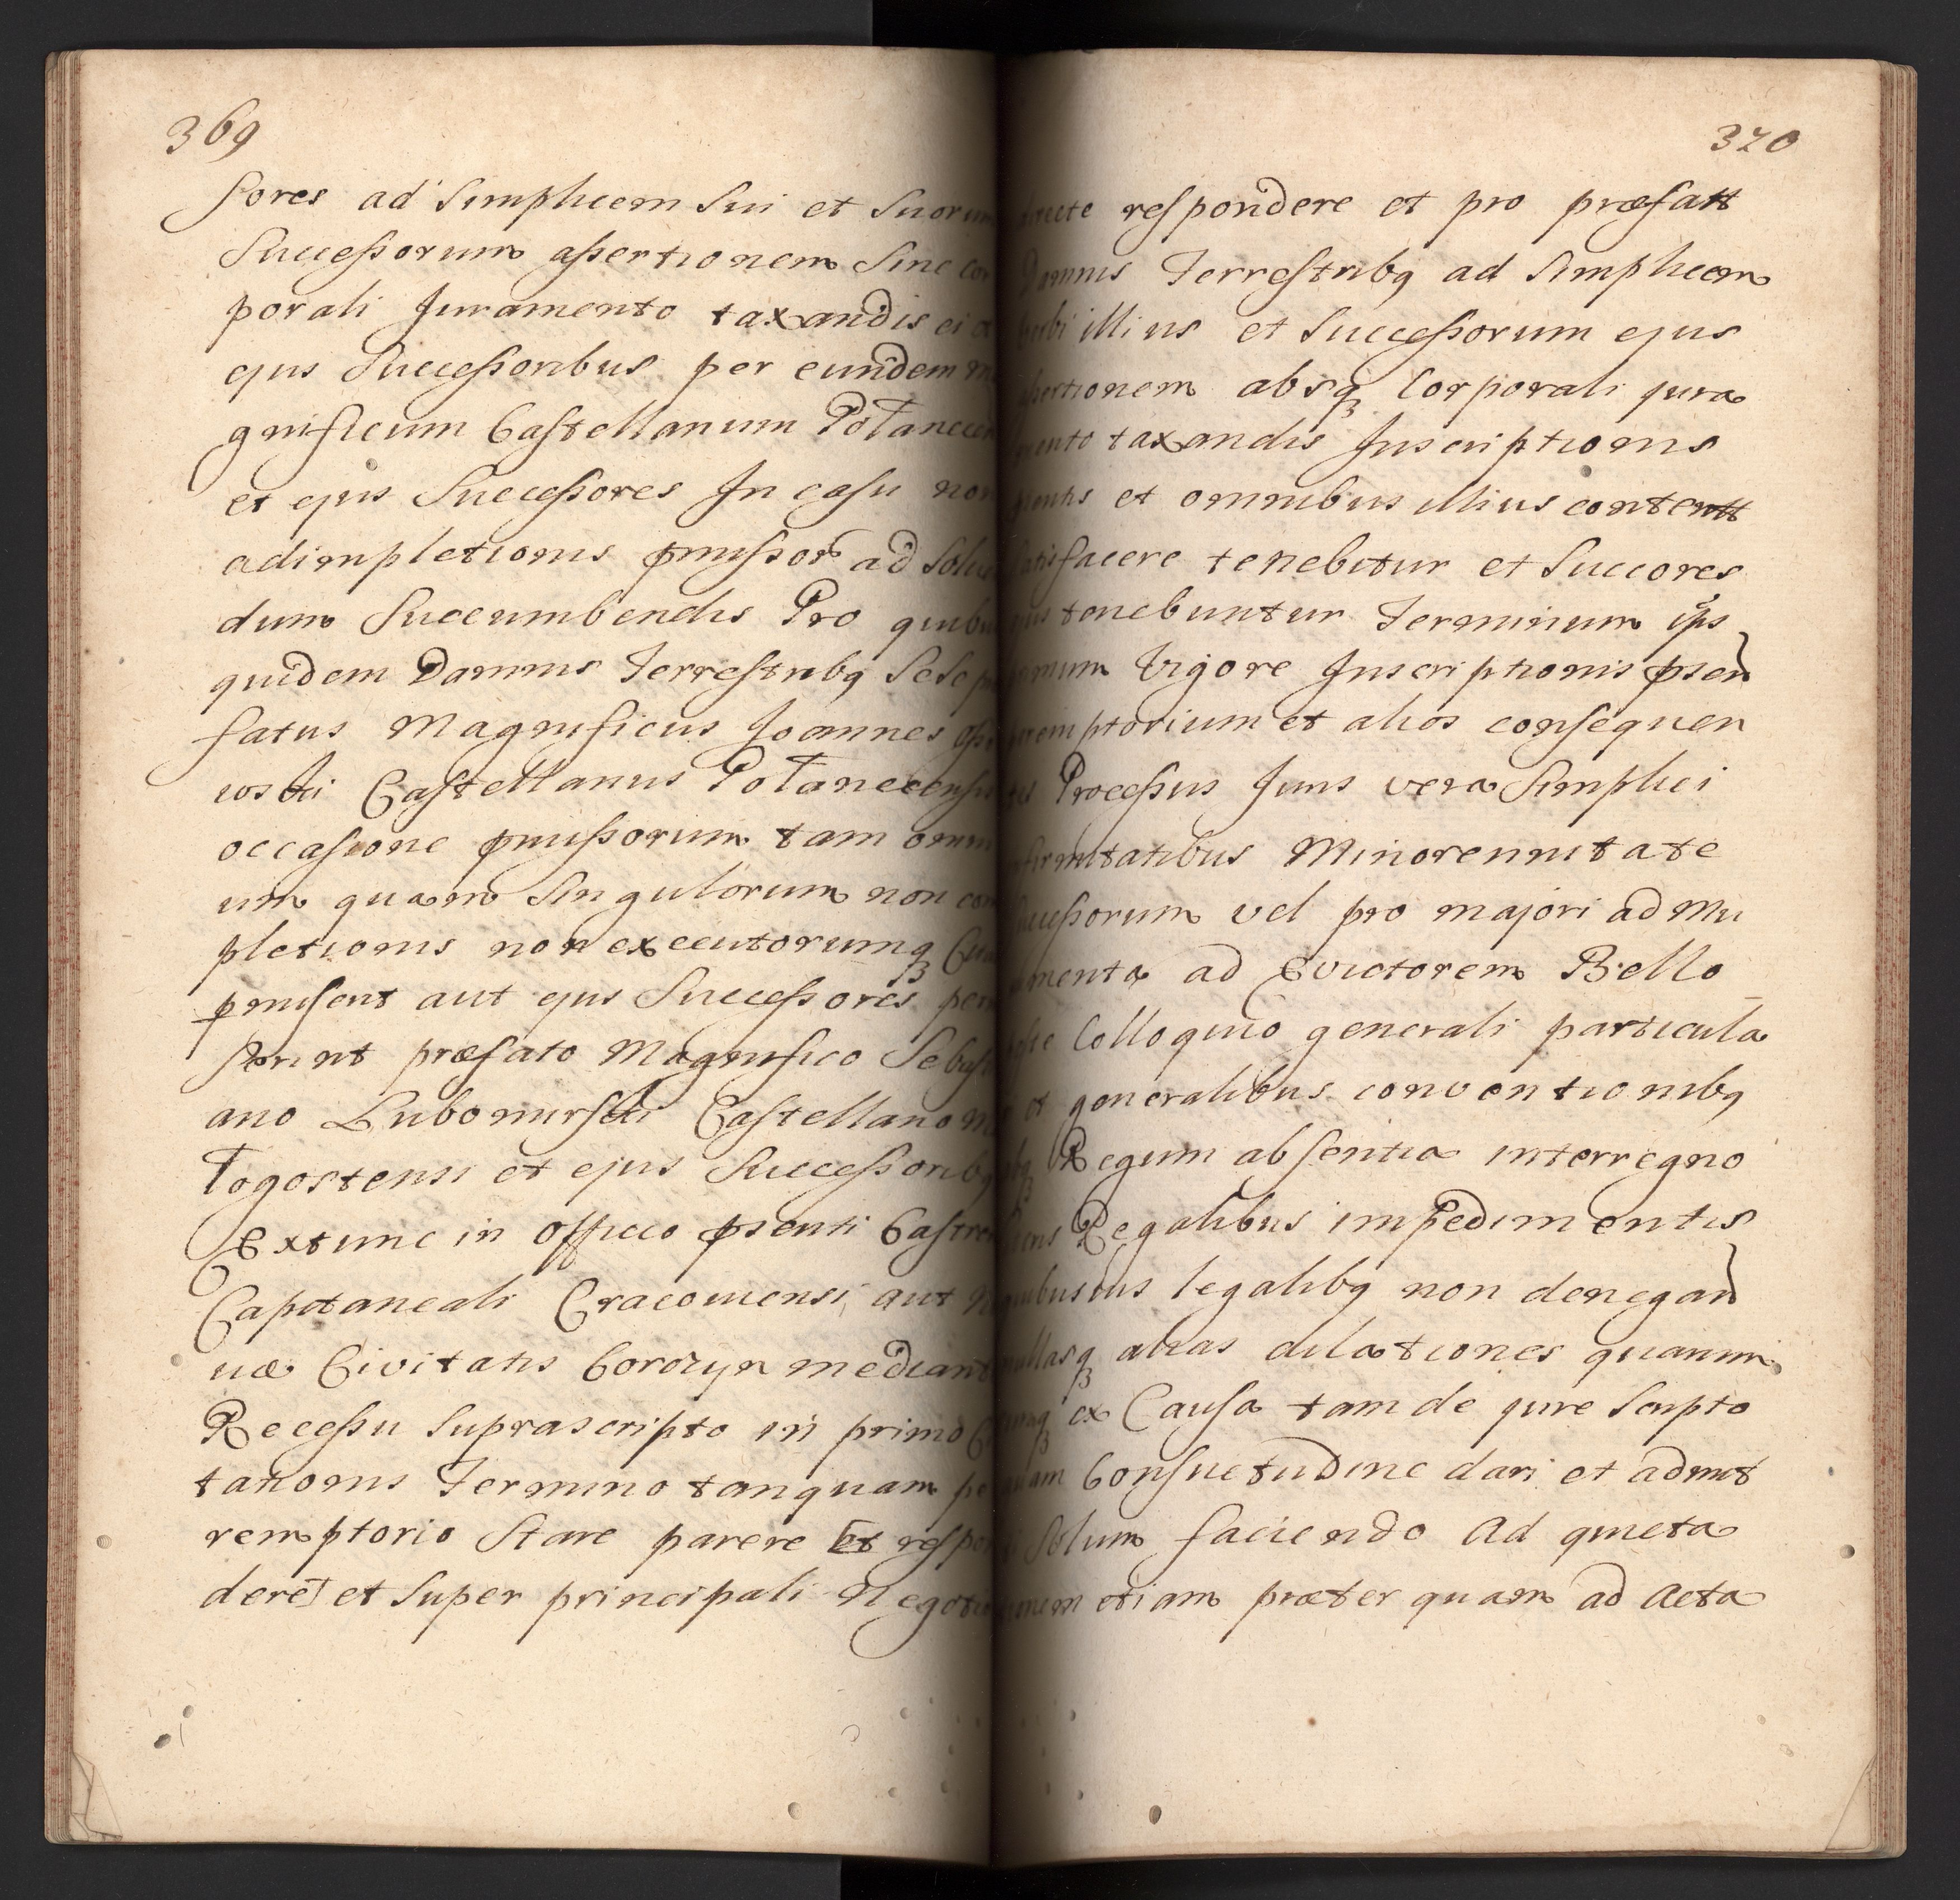 369
sores ad simplicem sui et suorum
Successorum assertionem sine cor
porali Juramento taxandis ei et
ejus Successoribus per eundem
gnificum Castellanum Połanecen
et ejus Successores In casu non
adimpletionis pmissor ad solu
dum Succumbendis Pro quibu
quidem Damnis Terrestribq sese
fatus Magnificus Joannes
ioski Castellanus Połanecensis
occasione pmissorum tam omni
um quam singulorum non com
pletionis non executorumqꝫ
pmisent aut ejus Successores per
serint præfato Magnifico Sebasti
ano Lubomirski Castellano
łogostensi et ejus Successoribq
Extunc in officio psenti Castren
Capitaneali Cracoviensi aut
uæ Civitatis Corczyn mediant
Recessu suprascripto in primo
tationis Termino tanquam pe
remptorio stare parere [et respon
dere] et super principali Negotio
370
directe respondere et pro præfatt
Damnis Terrestribq ad simplicem
verbi illius et Successorum ejus
assertionem absqꝫ Corporali jura
mento taxandis Inscriptionis
et omnibus illius contentt
satisfacere tenebitur et Succores
ejus tenebuntur Terminum ips
Vigore Inscriptionis psen
peremptorium et alios consequen
tis Processus Juris vera simplici
infirmitatibus Minorennitate
Successorum vel pro majori ad Mu
nimenta ad Evictorem Bello
Colloquio generali particula
et generalibus conventionibq
Regum absentia interregno
Regalibus impedimentis
legalibq non denegan
nullasqꝫ alias dilationes quamm
ex Causa tam de jure scripto
quam Consuetudine dari et admit
solum faciendo Ad quieta
tionem etiam præter quam ad Acta